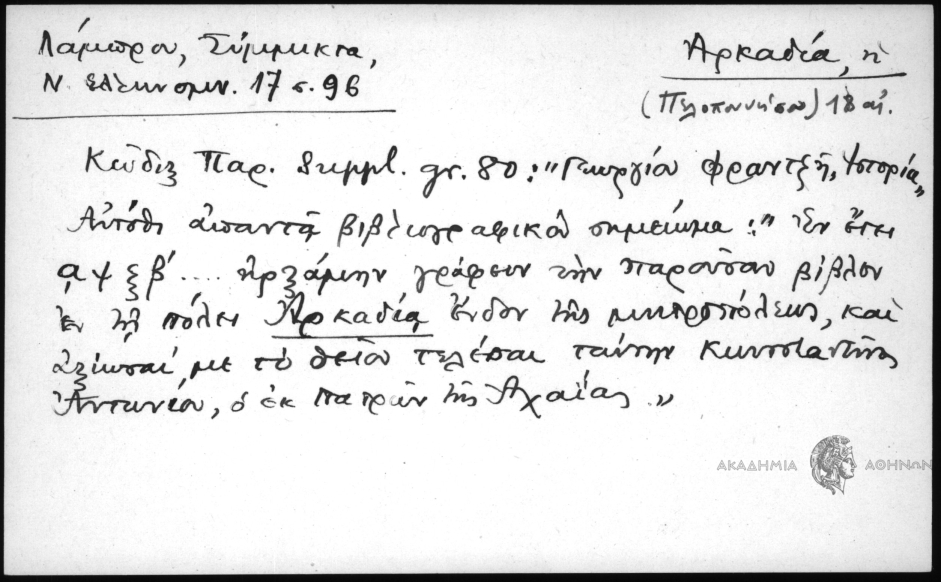 Λάμπρου, Σύμμικτα,
Ν. Ελληνομν. 17 σ. 96
Ἀρκαδία, ἡ
(Πελοποννήσου) 18 αἰ.
Κῶδιξ Παρ. Suppl. gr. 80: "Γεωργίου Φραντζῆ, Ἱστορία„
Αὐτόθι ἀπαντᾷ βιβλιογραφικὸν σημείωμα: "Ἐν ἔτει
͵αψξβ΄ .... ἠρξάμην γράφειν τὴν παροῦσαν βίβλον
ἐν τῇ πόλει Ἀρκαδίᾳ ἔνδον τῆς μητροπόλεως, καὶ
ἀξιῶσαί με τὸ θεῖον τελέσαι ταύτην Κωνσταντῖνος
Ἀντωνίου, ὁ ἐκ Πατρῶν τῆς Ἀχαΐας.„
ΑΚΑΔΗΜΙΑ ΑΘΗΝΩΝ